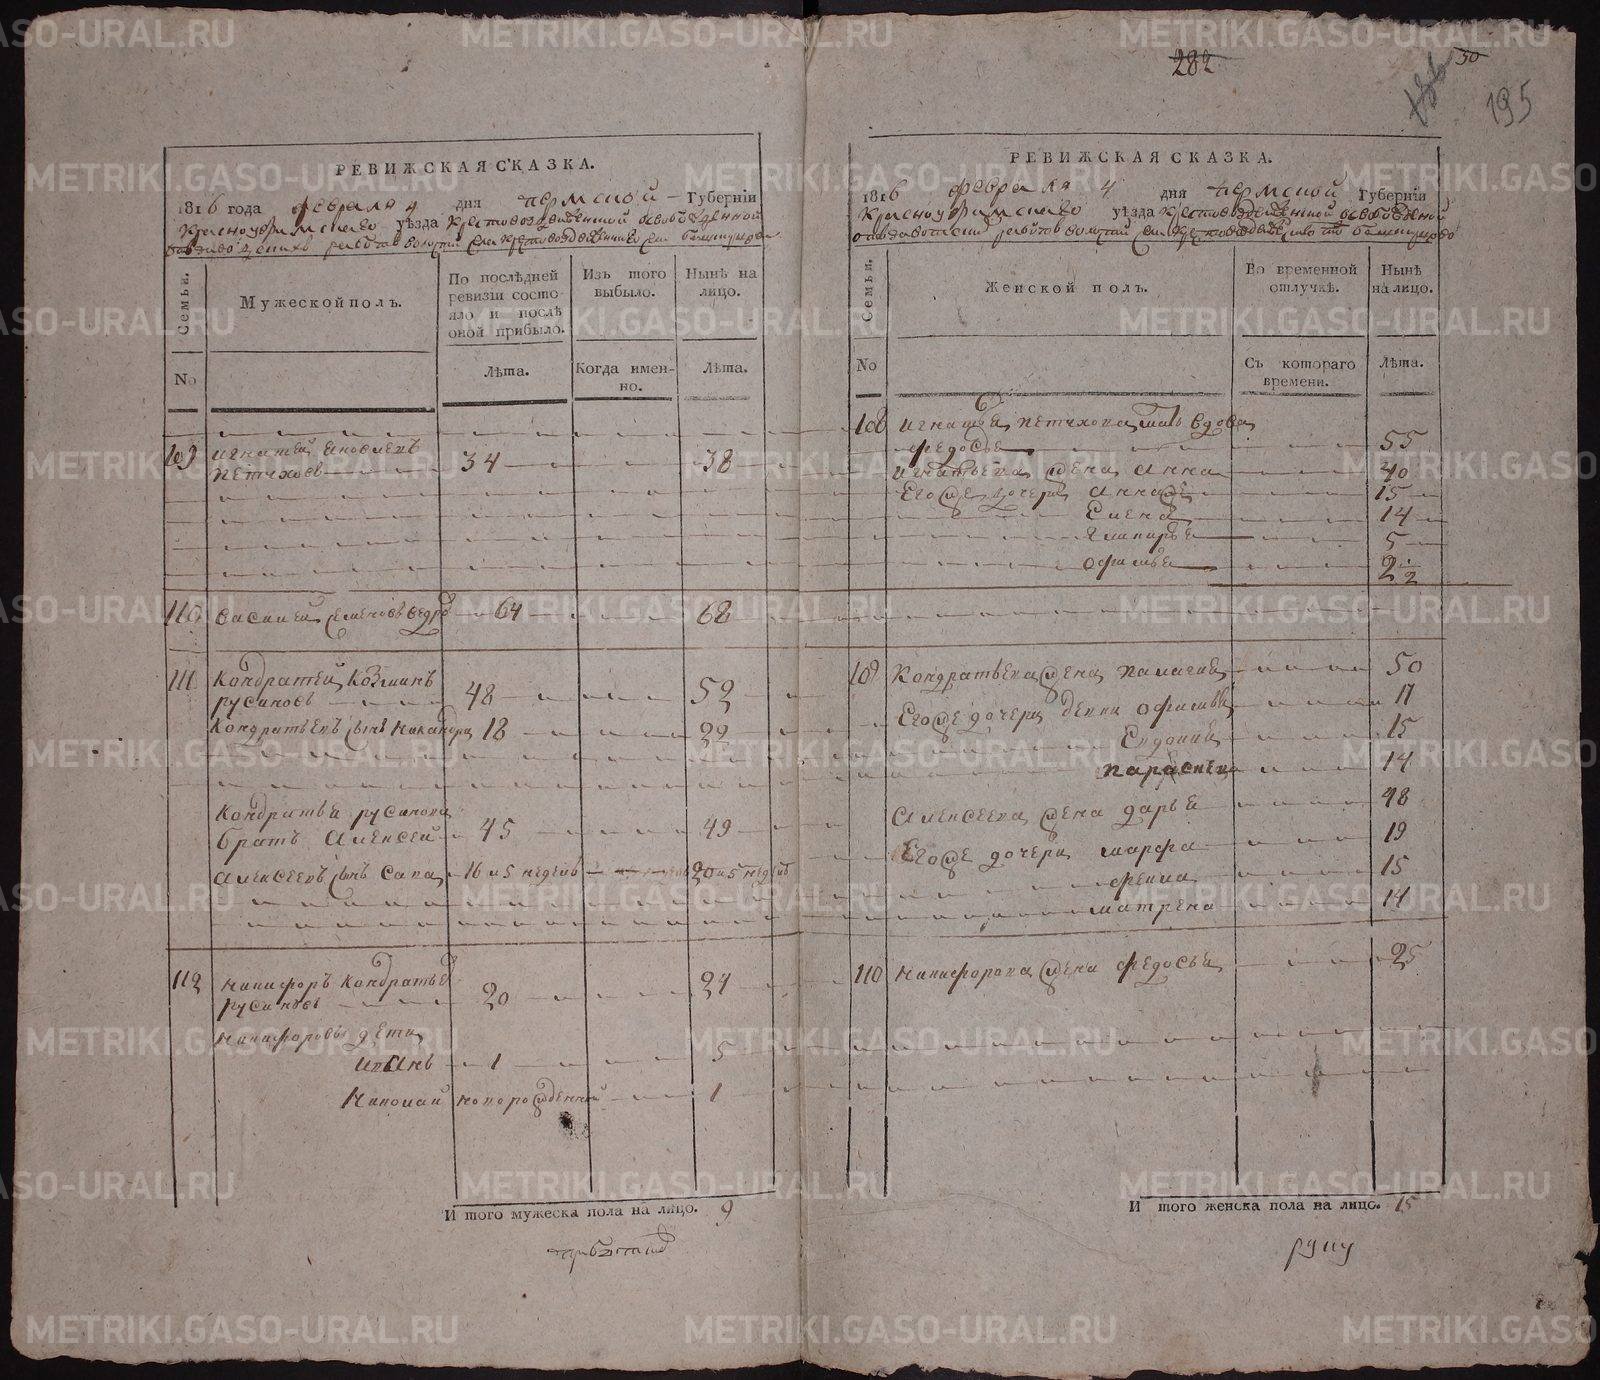 282
50
195
РЕВИЖСКАЯ СКАЗКА.
1816 года февраля 4 дня пермской Губерніи
красноуфимскаго уѣзда крестовоздвиженской
Семьи.
Мужеской полъ.
По послѣдней ревизіи состояло и послѣ оной прибыло.
Изъ того выбыло.
Нынѣ на лицо.
No
Лѣта.
Когда именно.
Лѣта.
109 игнатей яковлевъ
петуховъ 34 38
110 василей семеновъ 64 68
111 Кондратей Козминъ
русиновъ 48 52
Кондратьевъ сынъ никандра 18 22
Кондратья русинова
братъ алексей 45 49
алексеевъ сынъ сава 16 и 5 недель 20 и 5 недель
112 никифоръ Кондратьев
русиновъ 20 24
никифоровы дети
иванъ 1 5
николай новорожденной 1
И того мужеска пола на лицо. 9
РЕВИЖСКАЯ СКАЗКА.
1816 февраля 4 дня пермской Губерніи
красноуфимскаго уѣзда крестовоздвиженской
Семьи.
Женской полъ.
Во временной отлучкѣ.
Нынѣ на лицо.
No
Съ котораго времени.
Лѣта.
108 игнатья петухова мать вдова
федосья 55
игнатьева жена анна 40
Его же дочери анна 15
Елена 14
гликирья 5
офимья 2 1/2
109 Кондратьева жена палагия 50
Его же дочери девки офимья 17
Евдокия 15
парасковья 14
алексеева жена дарья 48
Его же дочери марфа 19
фекла 15
матрена 14
110 никифорова жена федосья 25
И того женска пола на лицо. 15
руку
METRIKI.GASO-URAL.RU